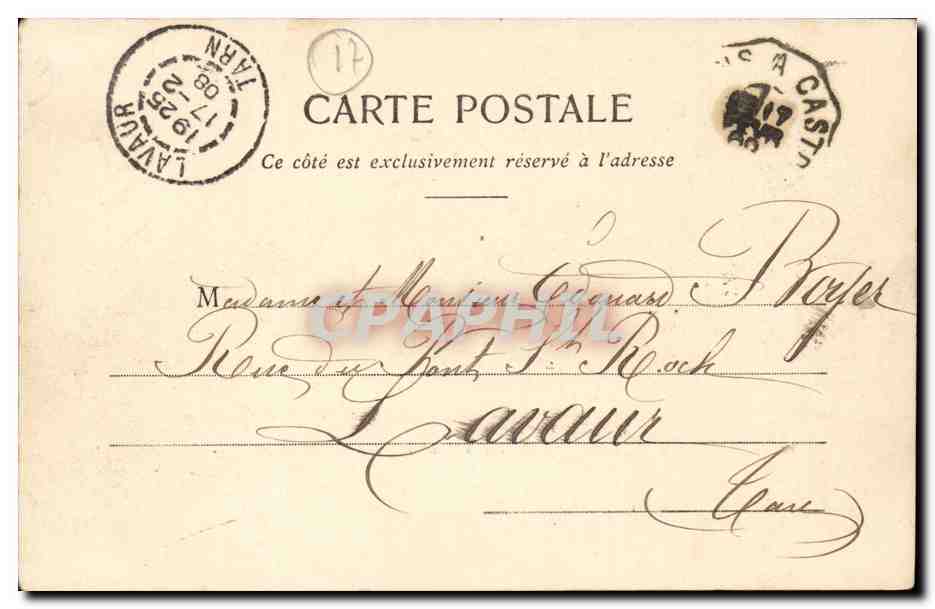 17
LAVAUR
1925
17-2
08
TARN
A CAST
CARTE POSTALE
Ce côté est exclusivement réservé à l'adresse
Madame et Monsieur Edouard Boyer
Rue du Pont St Roch
Lavaur
Tarn
CPAPHIL